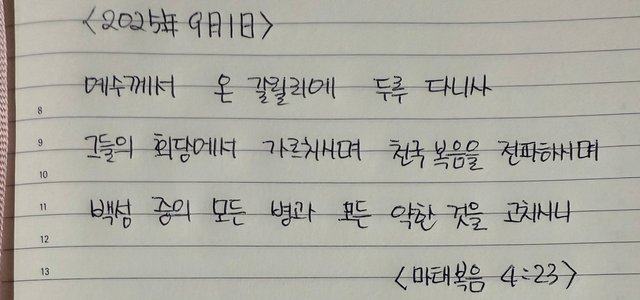 <2025年 9月1日>
예수께서 온 갈릴리에 두루 다니사
8
9 그들의 회당에서 가르치시며 천국 복음을 전파하시며
10
11 백성 중의 모든 병과 모든 약한 것을 고치시니
12
13 <마태복음 4:23>